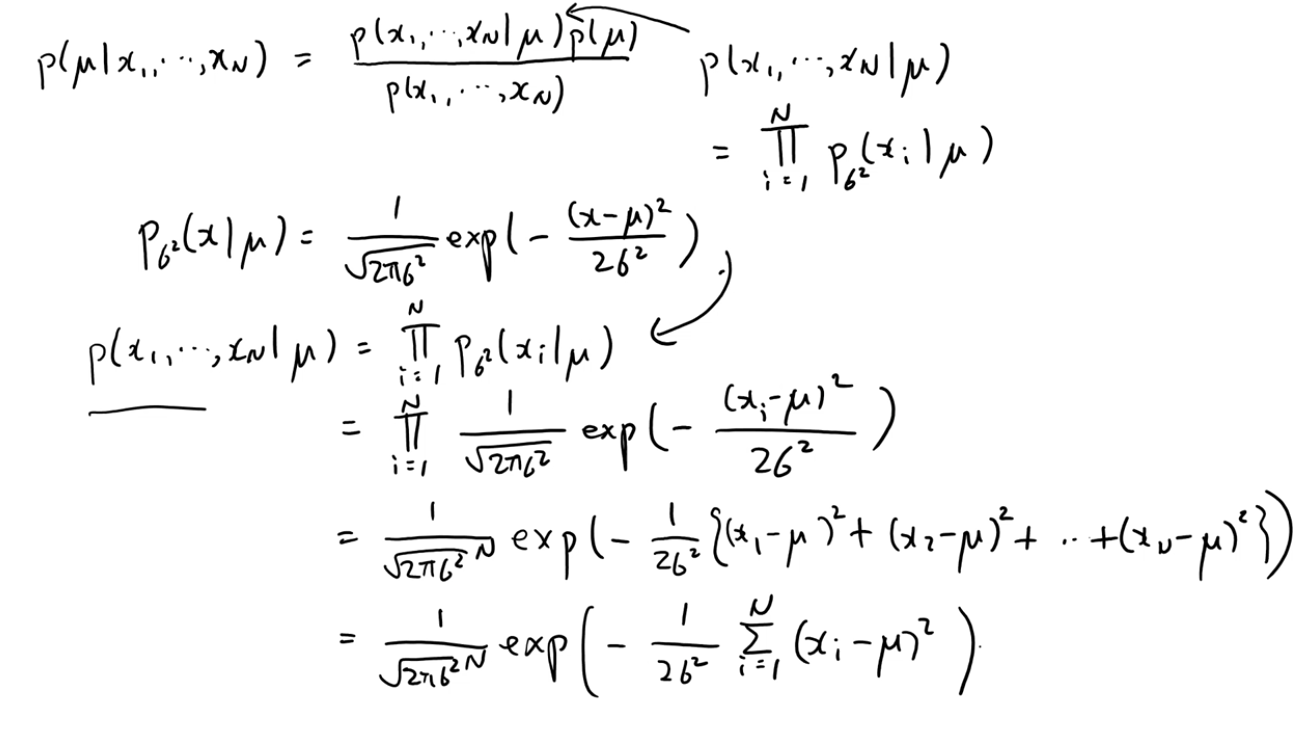 p(μ|x₁,⋯,x_N) = p(x₁,⋯,x_N|μ)p(μ) / p(x₁,⋯,x_N)
p(x₁,⋯,x_N|μ)
= ∏_{i=1}^{N} p_{σ²}(x_i|μ)
p_{σ²}(x|μ) = 1/√(2πσ²) exp(− (x−μ)²/2σ²)
p(x₁,⋯,x_N|μ) = ∏_{i=1}^{N} p_{σ²}(x_i|μ)
= ∏_{i=1}^{N} 1/√(2πσ²) exp(− (x_i−μ)²/2σ²)
= 1/√(2πσ²)^N exp(− 1/2σ² {(x₁−μ)² + (x₂−μ)² + ⋯ + (x_N−μ)²})
= 1/√(2πσ²)^N exp(− 1/2σ² ∑_{i=1}^{N} (x_i−μ)²).